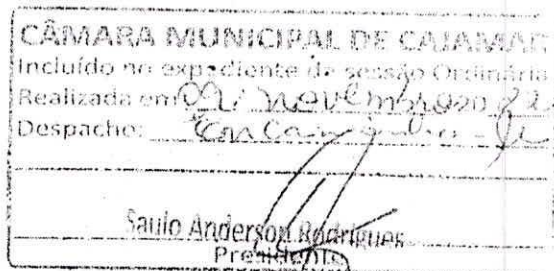 CÂMARA MUNICIPAL DE CAJAMAR
Incluído no expediente da sessão Ordinária
Realizada em 09/ novembro 20 22
Despacho: Encaminhe-se
Saulo Anderson Rodrigues
Presidente